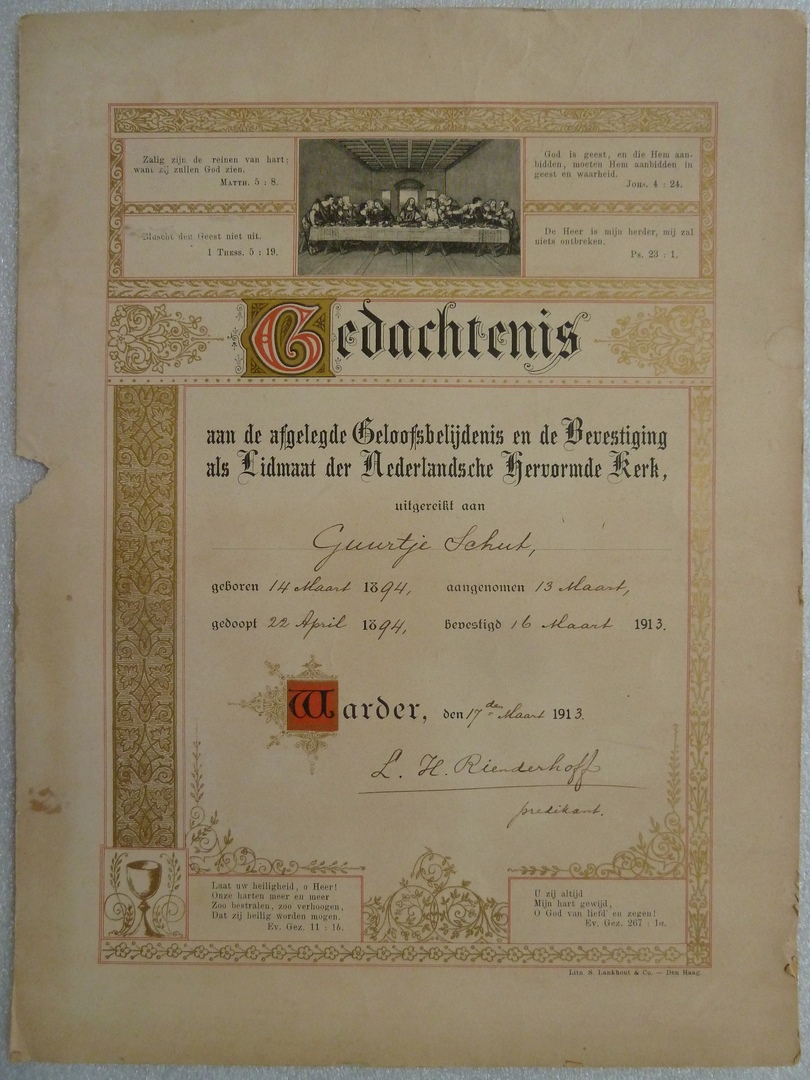 Zalig zijn de reinen van hart;
want zij zullen God zien.
Matth. 5 : 8.
Bluscht den Geest niet uit.
1 Thess. 5 : 19.
God is geest, en die Hem aan-
bidden, moeten Hem aanbidden in
geest en waarheid.
Joh. 4 : 24.
De Heer is mijn herder, mij zal
niets ontbreken.
Ps. 23 : 1.
Gedachtenis
aan de afgelegde Geloofsbelijdenis en de Bevestiging
als Lidmaat der Nederlandsche Hervormde Kerk,
uitgereikt aan
Guurtje Schut,
geboren 14 Maart 1894, aangenomen 13 Maart,
gedoopt 22 April 1894, bevestigd 16 Maart 1913.
Warder, den 17den Maart 1913.
L. H. Rienderhoff
predikant.
Laat uw heiligheid, o Heer!
Onze harten meer en meer
Zoo bestralen, zoo verhoogen,
Dat zij heilig worden mogen.
Ev. Gez. 11 : 16.
U zij altijd
Mijn hart gewijd,
O God van liefd' en zegen!
Ev. Gez. 267 : 1a.
Lith. S. Lankhout & Co. — Den Haag.